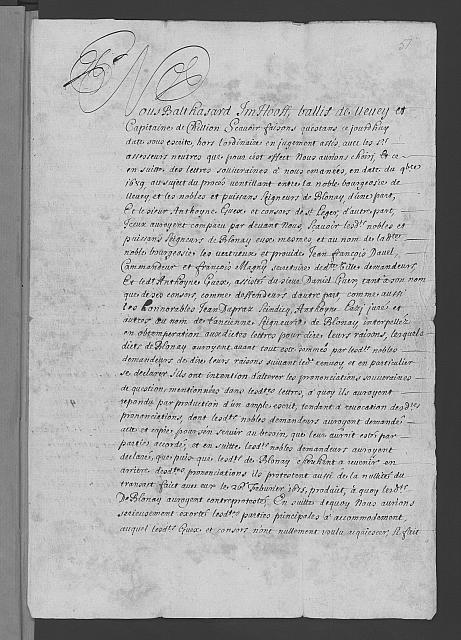 57
Nous Balthasard ImHooff, ballif de Vevey et
Capitaine de Chillion Scavoir faisons qu'estans ce jourdhuy
date sous escrite, hors l'ordinaire en jugement assis, avec les Srs
assesseurs neutres que pour c'est effect Nous aurions choisi, et ce
en suitte des lettres souveraines a nous emanées, en date du
1659 au sujet du proces ventillant entre la noble bourgeoisie de
Vevey et les nobles et puissans Seigneurs de Blonay d'une part,
Et le sieur Anthoyne Guex et consors de St Legey d'autre part,
Iceux auroyent comparu par devant Nous, Scavoir lesdts nobles et
puissans Seigneurs de Blonay eux mesmes et au nom de ladtte
noble bourgeoisie les vertueux et provides Jean François Davel,
Commandeur et François Magny secretaire dedtte Ville demandeurs
Et ledt Anthoyne Guex, assisté du sieur Daniel Guex tant a son nom
que de ses consors, comme deffendeurs d'autre part comme aussi
les honnorables Jean Duprez Scindicq, Anthoyne juré et
autres au nom de l'ancienne Seigneurie de Blonay interpellez
en obtemperation auxdictes lettres pour dire leurs raisons, lesquels
dicts de Blonay auroyent avant tout esté sommé par lesdts nobles
demandeurs de dire leurs raisons suivant ledt renvoy et en particulier
se declarer s'ils ont intention d'alterer les prononciations souveraines
de question mentionnées dans lesdttes lettres, a quoy ils auroyent
repondu par production d'un ample escrit, tendant a revocation desdttes
prononciations, dont lesdts nobles demandeurs auroyent demandé
acte et copie pour s'en servir au besoin, que leur auroit esté par
parties accordé, et en suitte, lesdts nobles demandeurs auroyent
declaré, que puis que lesdts de Blonay cherchent a revenir en
arriere desdttes prononciations ils protestent aussi de la nullité du
transact fait avec eux le 26e Febvrier 1615, produit, a quoy lesdts
De Blonay auroyent contreprotesté. En suitte de quoy Nous aurions
serieusement exorté lesdttes parties principales a accommodement
auquel lesdts Guex et consors n'ont nullement voulu acquiescer, Il fait